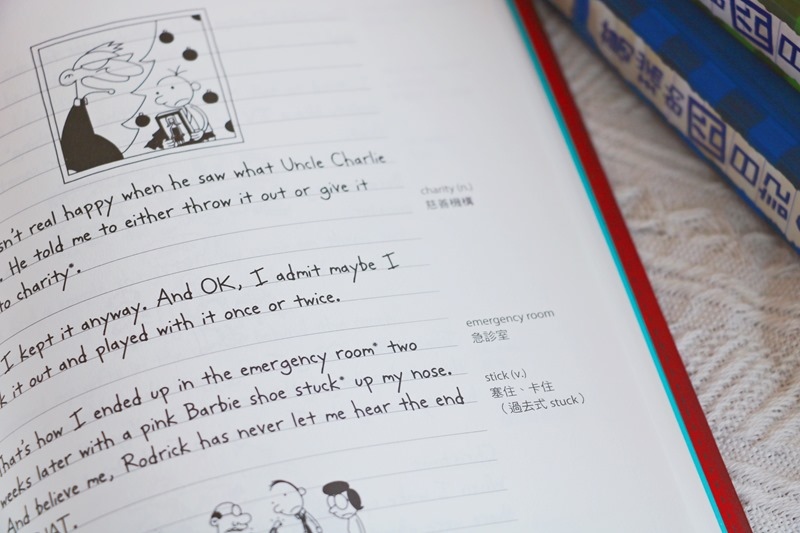 sn't real happy when he saw what Uncle Charlie
. He told me to either throw it out or give it
to charity*.
charity (n.)
慈善機構
I kept it anyway. And OK, I admit maybe I
k it out and played with it once or twice.
That's how I ended up in the emergency room* two
weeks later with a pink Barbie shoe stuck* up my nose.
And believe me, Rodrick has never let me hear the end
AT.
emergency room
急診室
stick (v.)
塞住、卡住
（過去式 stuck）
日記